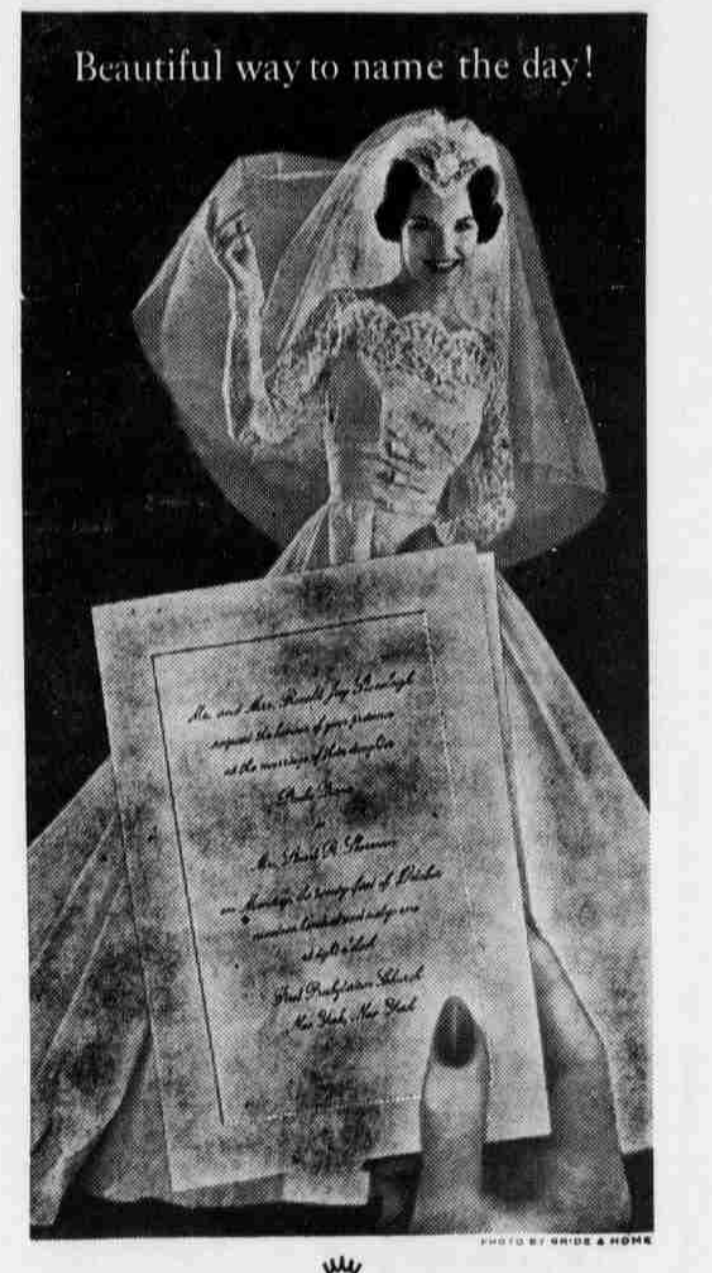 Beautiful way to name the day!
Mr. and Mrs. Ronald Jay
request the honour of your presence
at the marriage of their daughter
to
Mr. R.
on the twenty-first of October
nineteen hundred and sixty-one
at eight o'clock
First Presbyterian Church
New York, New York
PHOTO BY BRIDE & HOME